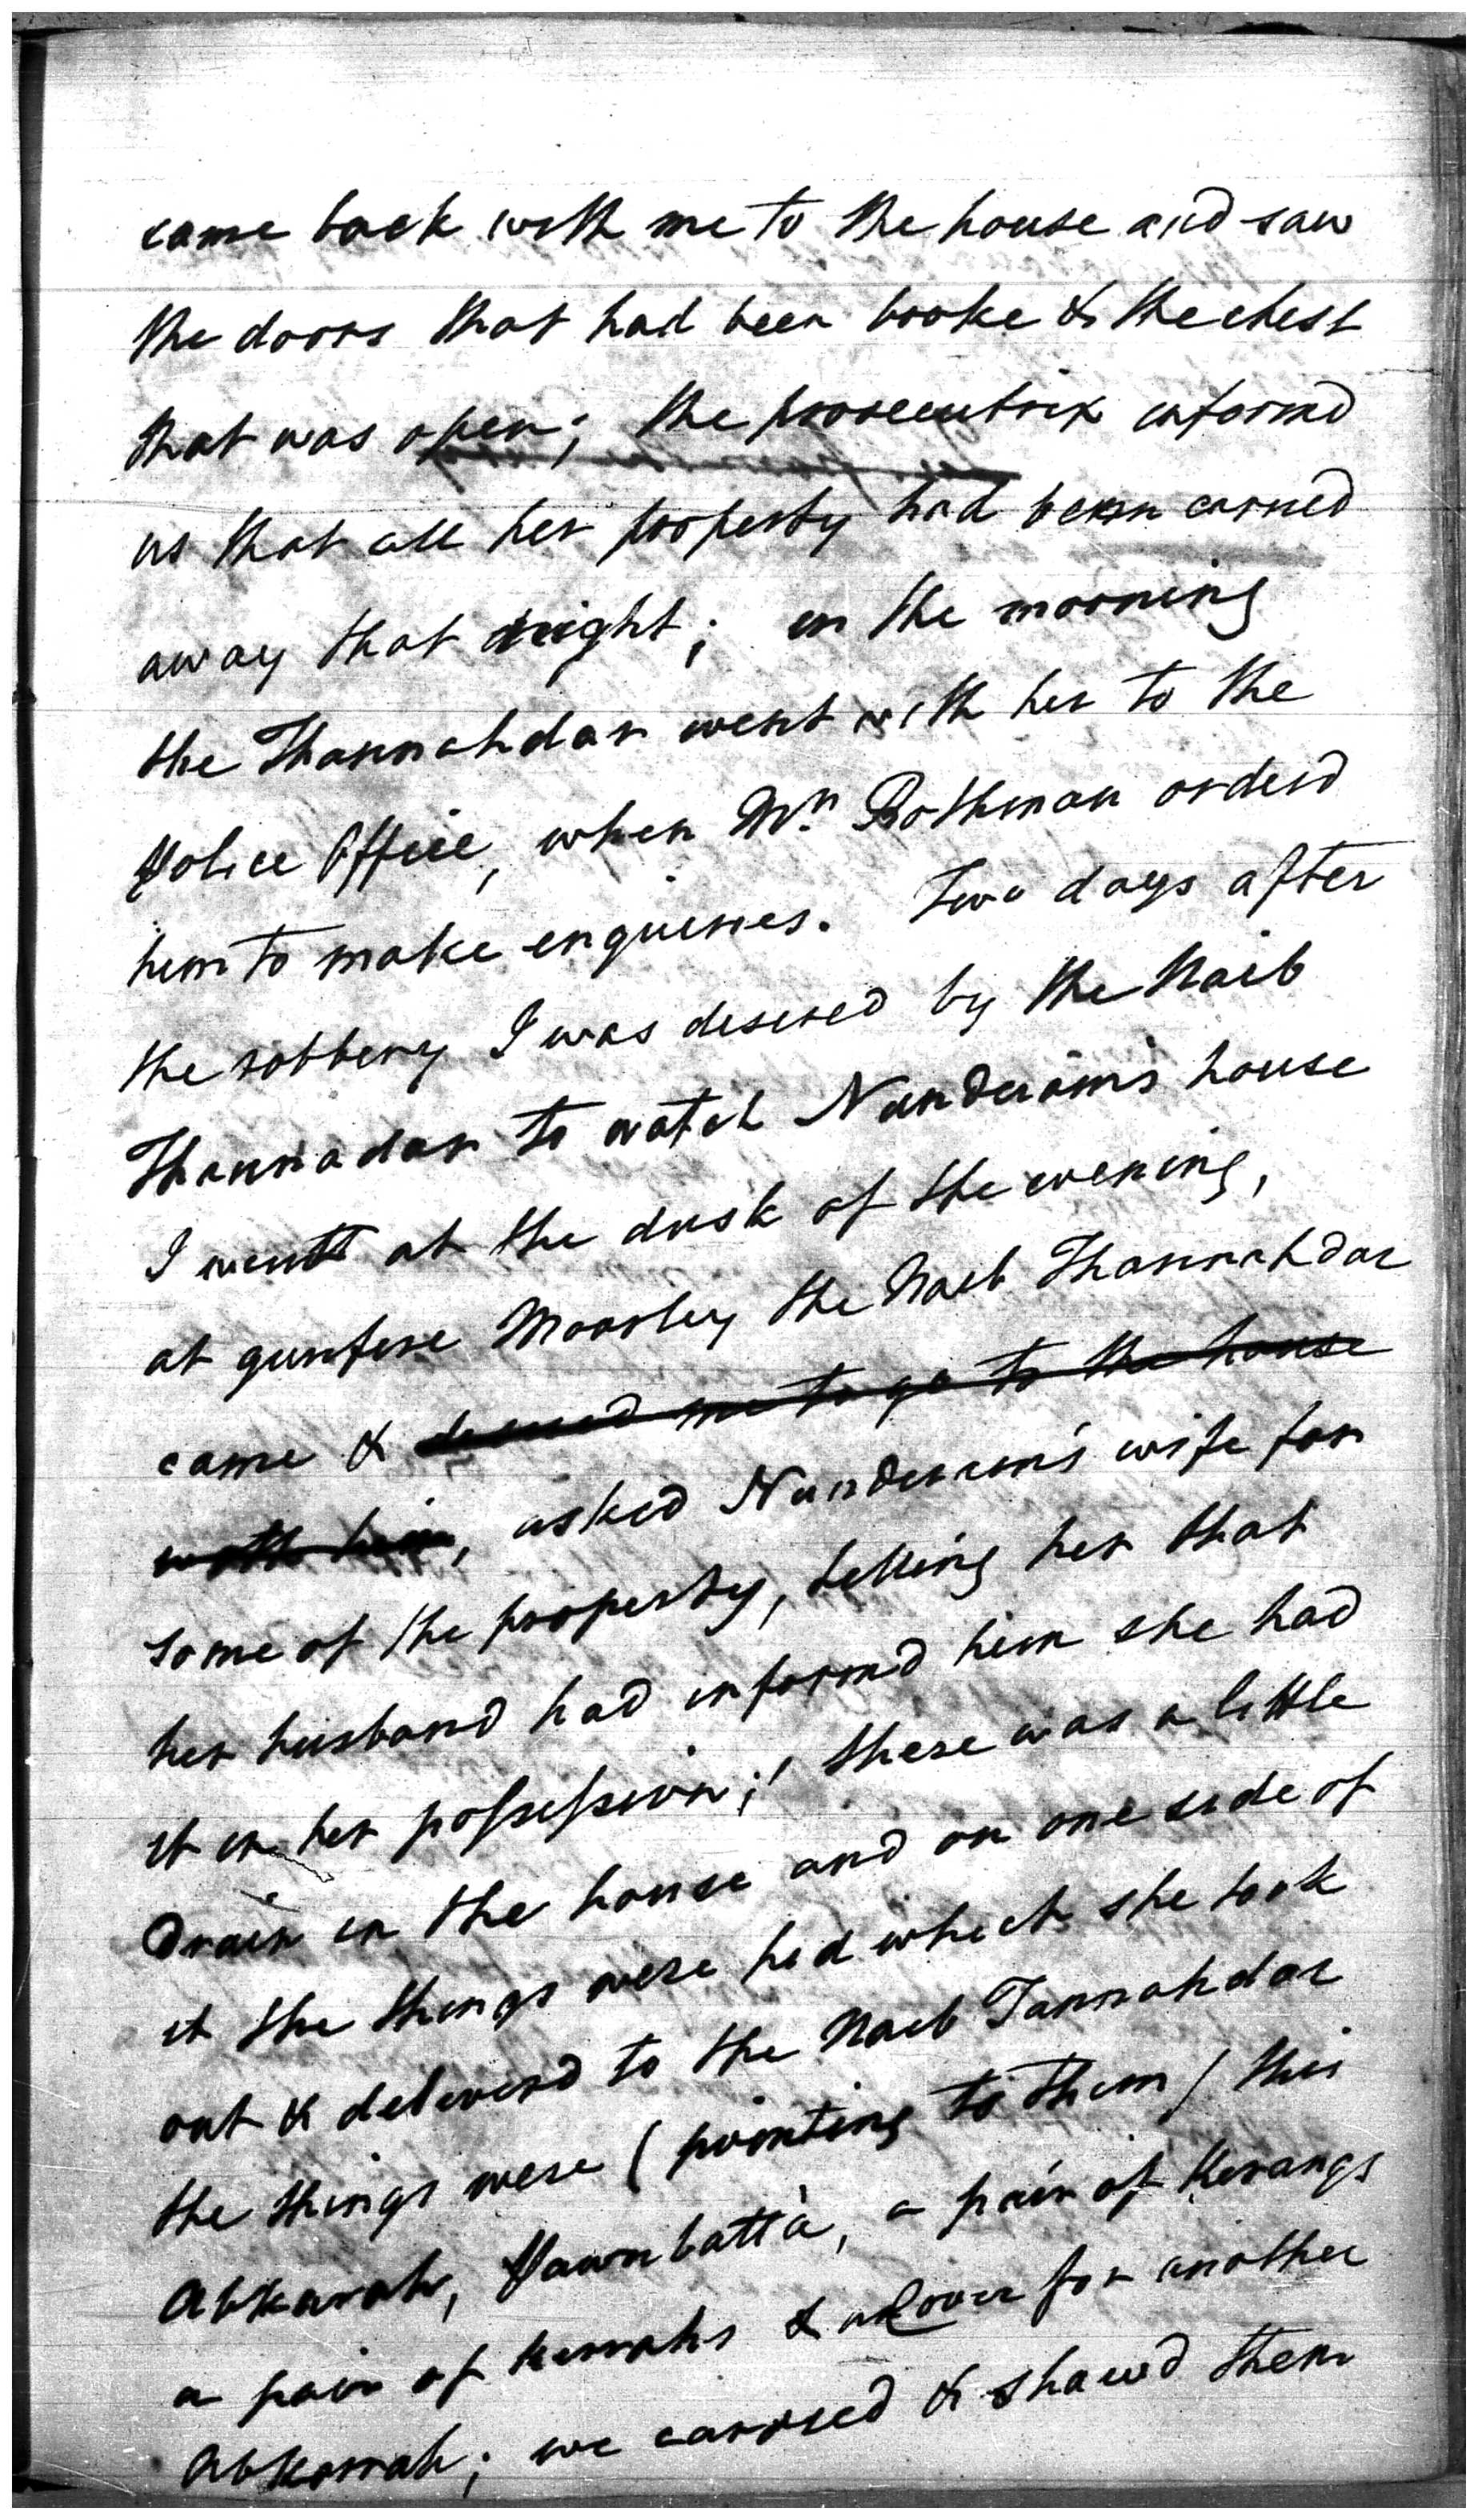 came back with me to the house and saw
the doors that had been broke & the chest
that was open; the prosecutrix informd
us that all her property had been carried
away that night; in the morning
the Thannahdar went with her to the
Police Office, when Mr. Bothman orderd
him to make enquiries. Two days after
the robbery I was desired by the Naib
Thannadar to watch Nunderam's house
I went at the dusk of the evening,
at gunfire Moorley the Naib Thannahdar
came & desired me to go to the house
with him, asked Nunderam's wife for
some of the property, telling her that
her husband had informd him she had
it in her possession; there was a little
Drain in the house and on one side of
it the things were hid which she took
out & deliverd to the Naib Tannahdar
the things were (pointing to them) this
Abkarah, Pawnbatta, a pair of Kerangs
a pair of Kurrahs & a Cover for another
Abkorrah; we carried & shewd them